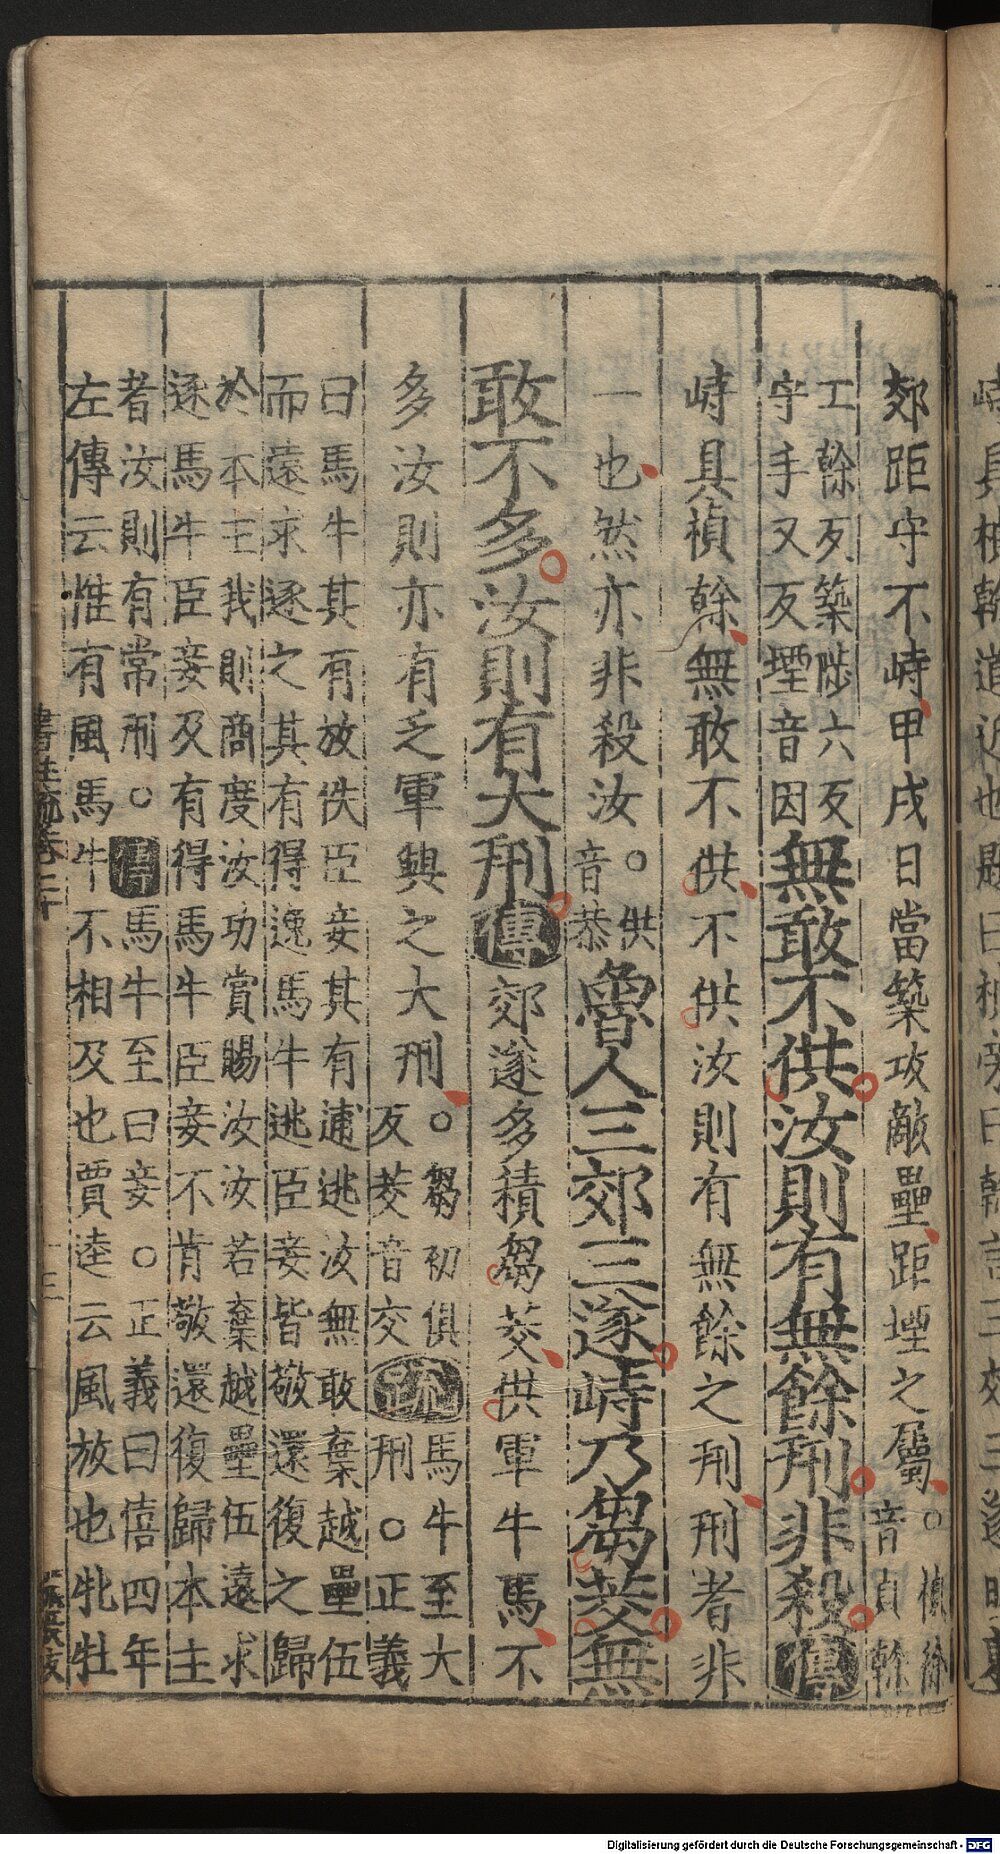 郊距守不峙甲戌日當築攻敵壘距堙之屬○楨徐音貞幹
工幹反築陟六反守手又反堙音因無敢不供汝則有無餘刑非殺傳
峙具楨幹無敢不供不供汝則有無餘之刑刑者非
一也然亦非殺汝○供音恭魯人三郊三遂峙乃芻茭無
敢不多汝則有大刑傳郊遂多積芻茭供軍牛馬不
多汝則亦有乏軍興之大刑○芻初俱反茭音交疏馬牛至大刑○正義
曰馬牛其有放佚臣妾其有逋逃汝無敢棄越壘伍
而遠求逐之其有得逸馬牛逃臣妾皆敬還復之歸
於本主我則商度汝功賞賜汝汝若棄越壘伍遠求
逐馬牛臣妾及有得馬牛臣妾不肯敬還復歸本主
者汝則有常刑○傳馬牛至曰妾○正義曰僖四年
左傳云惟有風馬牛不相及也賈逵云風放也牝牡
書注疏卷二十
十三
Digitalisierung gefördert durch die Deutsche Forschungsgemeinschaft - DFG